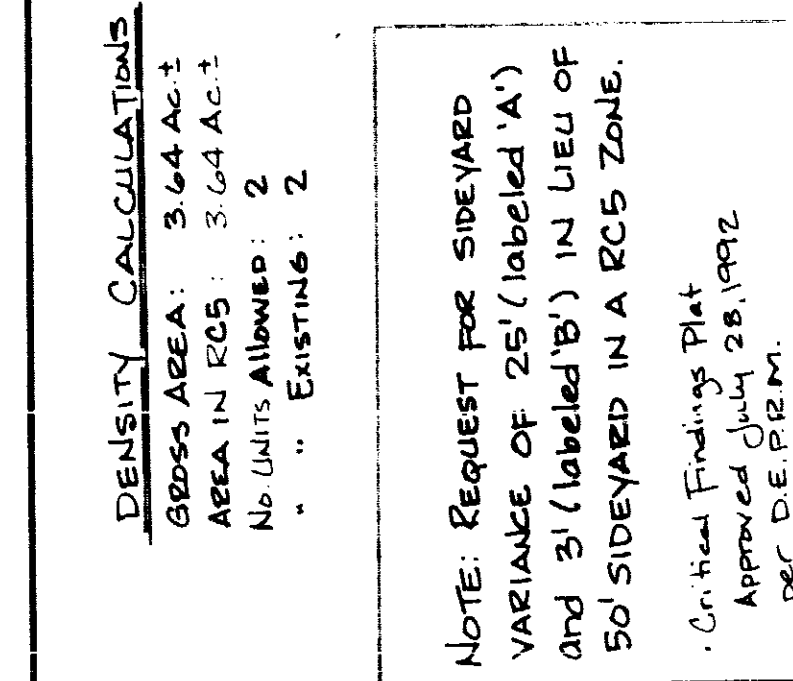 DENSITY CALCULATIONS
GROSS AREA: 3.64 Ac.±
AREA IN RC5: 3.64 Ac.±
No. UNITS Allowed: 2
" " EXISTING: 2
NOTE: REQUEST FOR SIDEYARD
VARIANCE OF 25' (labeled 'A')
and 3' (labeled 'B') IN LIEU OF
50' SIDEYARD IN A RC5 ZONE.
. Critical Findings Plat
Approved July 28, 1992
per D.E.P.R.M.